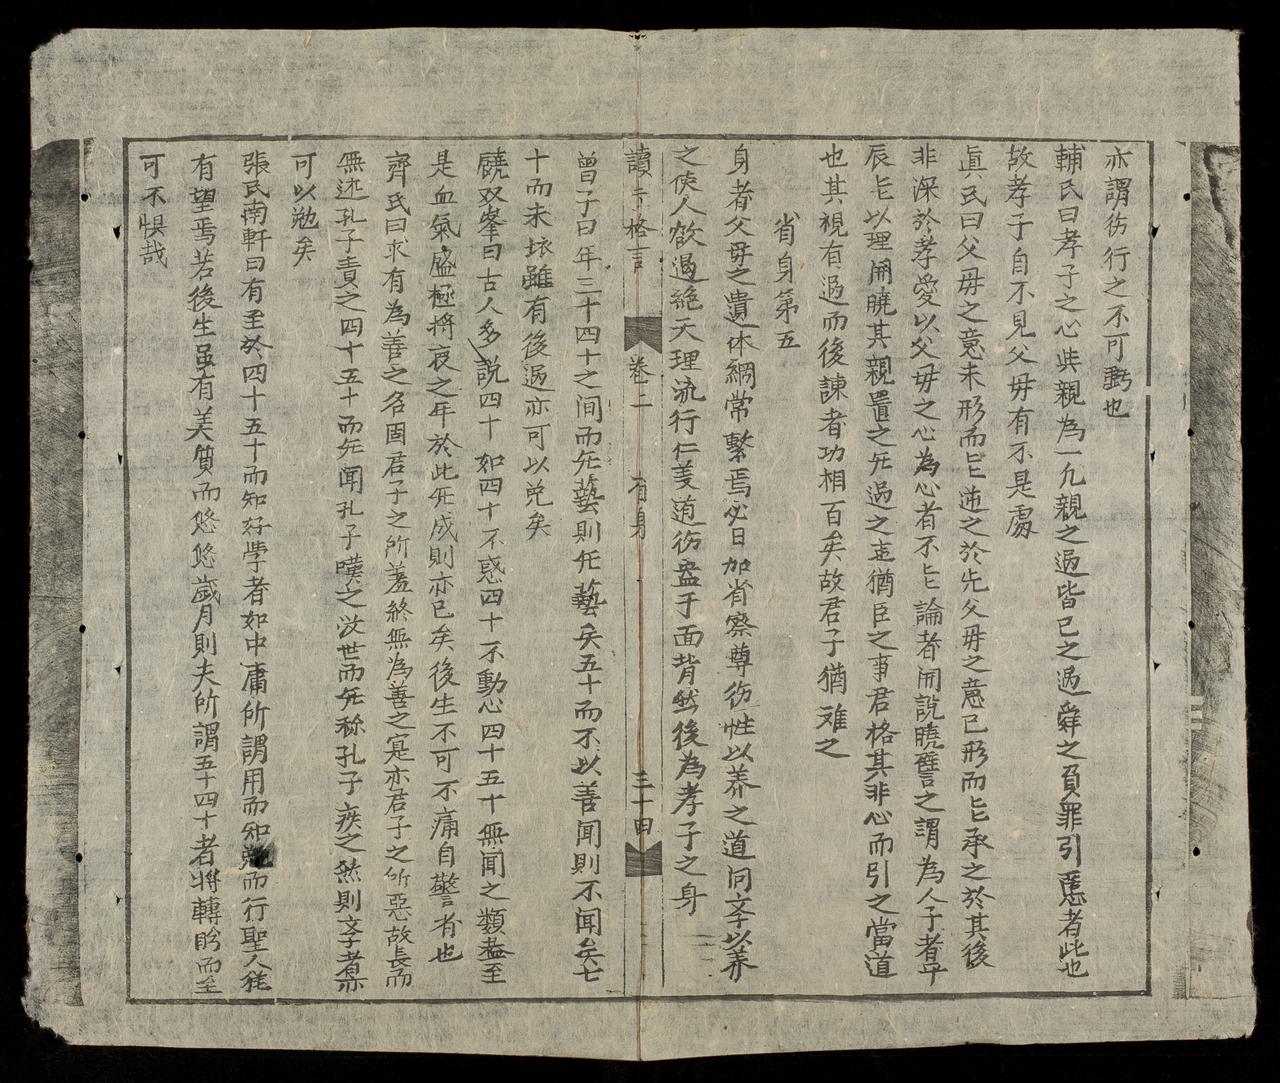 亦謂伤行之不可虧也
輔氏曰孝子之心與親為一凢親之過皆已之過舜之負罪引慝者此也
故孝子自不見父毋有不是處
眞氏曰父毋之意未形而㠯逆之於先父毋之意已形而㠯承之於其後
非深於孝愛以父毋之心為心者不㠯論者開說曉譬之謂為人子者平
辰㠯以理開曉其親置之旡過之地猶臣之事君格其非心而引之當道
也其視有過而後諫者功相百矣故君子猶难之
省身第五
身者父毋之遺体綱常繫焉必日加省察尊徳性以养之道问孝以养
之使人欲遏絶天理流行仁義道徳盎于面背然後為孝子之身
讀書格言 卷二 省身 三十四
曾子曰年三十四十之间而旡藝則旡藝矣五十而不以善聞則不聞矣七
十而未坏雖有後過亦可以免矣
饒双峯曰古人多說四十如四十不惑四十不動心四十五十無聞之類盖至
是血氣盛極将衰之年於此旡成則亦已矣後生不可不痛自警省也
齊氏曰求有為善之名固君子之所羞終無為善之寔亦君子之所惡故長而
無述孔子責之四十五十而旡聞孔子嘆之没世而旡称孔子疾之然則孝者亦
可以勉矣
張氏南軒曰有至於四十五十而知好學者如中庸所謂用而知勉而行聖人猶
有望焉若後生虽有美質而悠悠歲月則夫所謂五十四十者将轉盻而至
可不惧哉